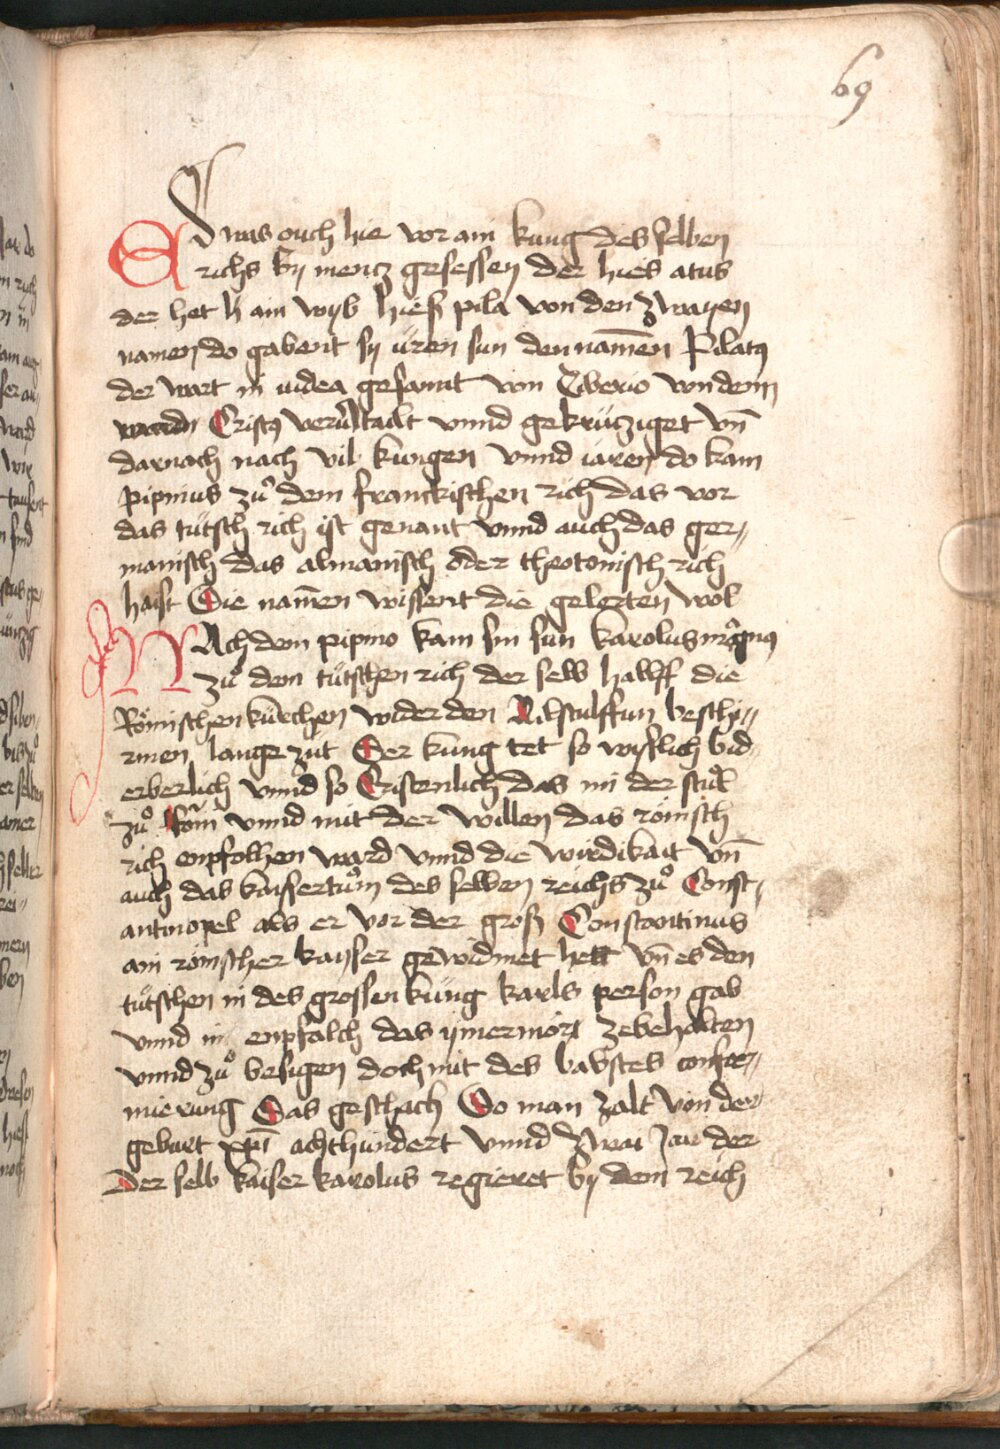 69
Es was ouch hie vor ain kung des selben
richs by mentz gesessen der hies atus
der het h ain wyb hiesz pila von den zwayen
namen do gabent sy üren sun den namēn Pilatꝰ
der wart in iudea gesannt von Tiberio von dem
ward Cristꝰ verurtailt vnnd gekrütziget vn̄
darnach nach vil kungen vnnd iaren do kam
pipinus zů dem franckischen rich das vor
das tütsch rich ist genant vnnd auch das ger„
manisch das almanisch oder theotonisch rich
haist Die nam̄en wissent die gelerten wol
NAch dem pipino kam sin sun karolus mꝛgnꝰ
zů dem tütschen rich der selb halff die
Römischen kürchen wider den Aistulffun beschir„
rmen lange züt Der kung tet so wyslich bid
erberlich vnnd so Cristenlich das im der stůl
zů Rom̄ vnnd mit der willen das römisch
rich enpfolhen ward vnnd die wirdikait vn̄
auch das kaissertům des selben reichs zů Const„
antinopel als er vor der grosz Constantinus
ain römscher kayser gewidmet hett vn̄ es den
tütschen in des grossen küng karls person gab
vnnd im enpfalch das ymermört zebehalten
vnnd zů besigen doch mit des babstes confir„
mierung Das geschach Do man zalt von der
geburt xpī achthundert vnnd zwai Jar der
Der selb kaiser karolus regieret by dem reich